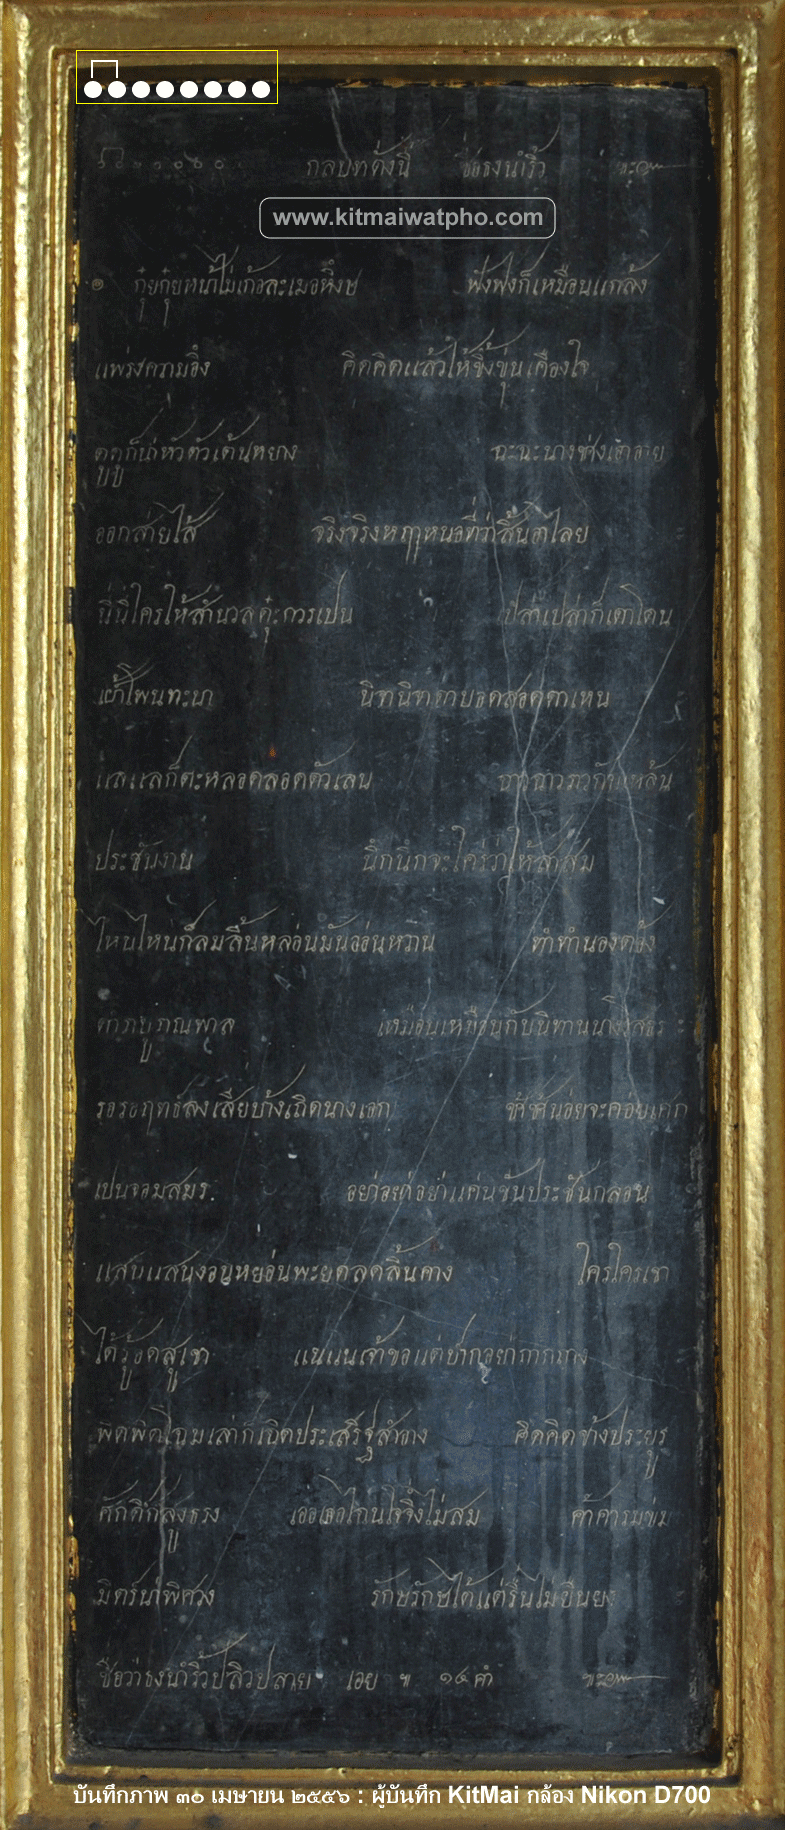 กลบทดังนี้ ชื่อธงนำริ้ว
www.kitmaiwatpho.com
๏ กุ๋ยกุ๋ยหน้าไม่เก้อละเมอหึงษ ฟังฟังก็เหมือนแกล้ง
แพร่งความอึ้ง คิดคิดแล้วให้ขึ้งขุ่นเคืองใจ
ดูดูก็น่าหัวตัวเต้นหยาง ฉะฉะนางช่างเอาอาย
ออกส่ายไส้ จริงจริงหฤๅหนอที่ว่าสิ้นอาไลย
นี่นี่ใครให้สำนวล ควรเปน เปล่าเปล่าก็เดาโดน
นิทนิทราบอดสอดตาเหน
แลแลก็ตะหลอดลอดตัวเลน
ประชันงาน นึกนึกจะใคร่ว่าให้สาสม
ไหนไหนก็ลมลิ้นหล่อนมันอ่อนหวาน ทำทำนองคล้อง
เหมือนเหมือนกับนิทาน
รอรอฤทธิลงเสียบ้างเถิดนางเอก ช้าช้าน่อยจะค่อยเศก
เปนจอมสมร อย่าอย่าอย่าแค่นขันประชันกลอน
แสนแสนงอนหย่อนพะยศลดลิ้นคาง ใครใครเขา
ได้รู้อดสูเขา แนแนเจ้าขอแต่ปากอย่าถากถาง
พิศพิศโฉมเล่าก็เฉิดประเสริฐสำอาง คิดคิดข้างประยูร
ศักดิก็สูงธรง เออเออไฉนใจจึ่งไม่สม ค้าคารมข่ม
มิตร์น่าพิศวง รักษรักษได้แต่ริ้นไม่ยืนยง
ชื่อว่าธงนำริ้วปลิวปลาย เอย ฯ ๑๔ คำ
บันทึกภาพ ๓๐ เมษายน ๒๕๕๖ : ผู้บันทึก KitMai กล้อง Nikon D700